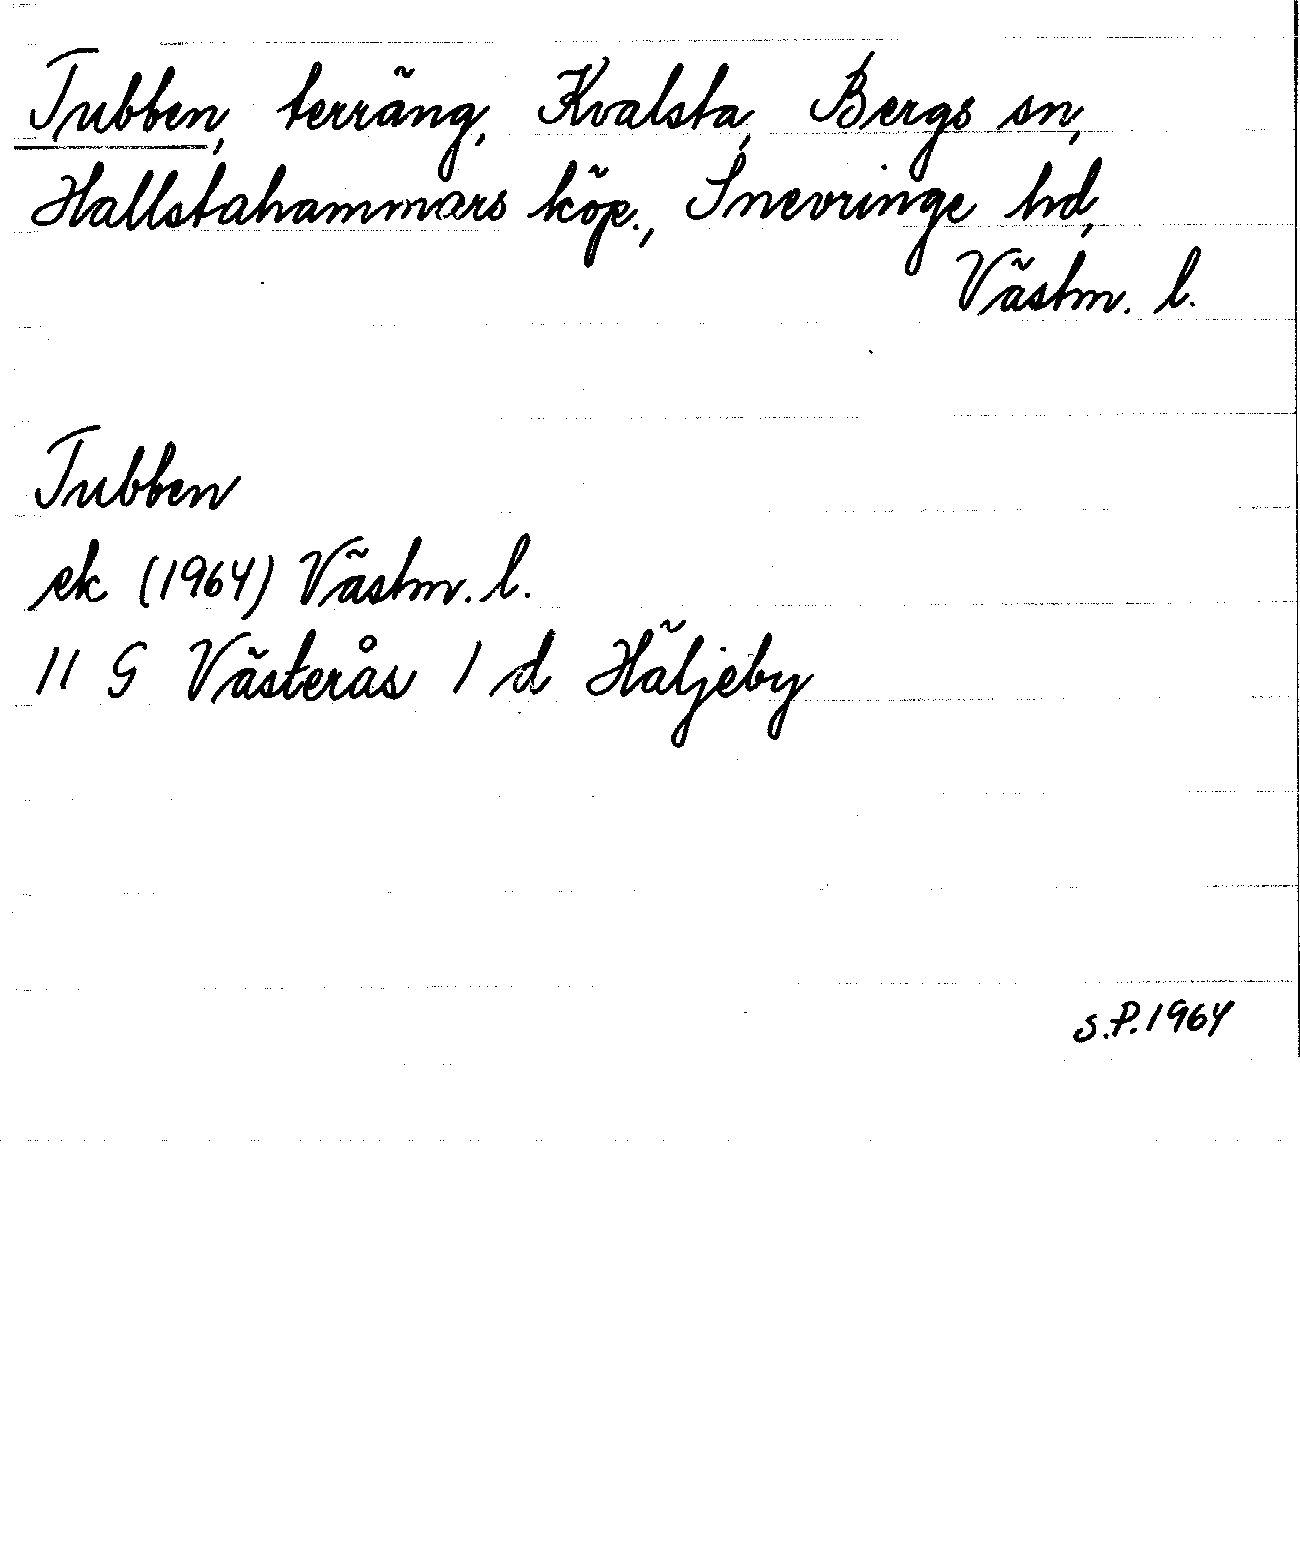 Tubben, terräng, Kvalsta, Bergs sn,
Hallstahammars köp., Snevringe hd,
Västm. l.
Tubben
ek (1964) Västm. l.
11 G Västerås 1 d Häljeby
S.P. 1964